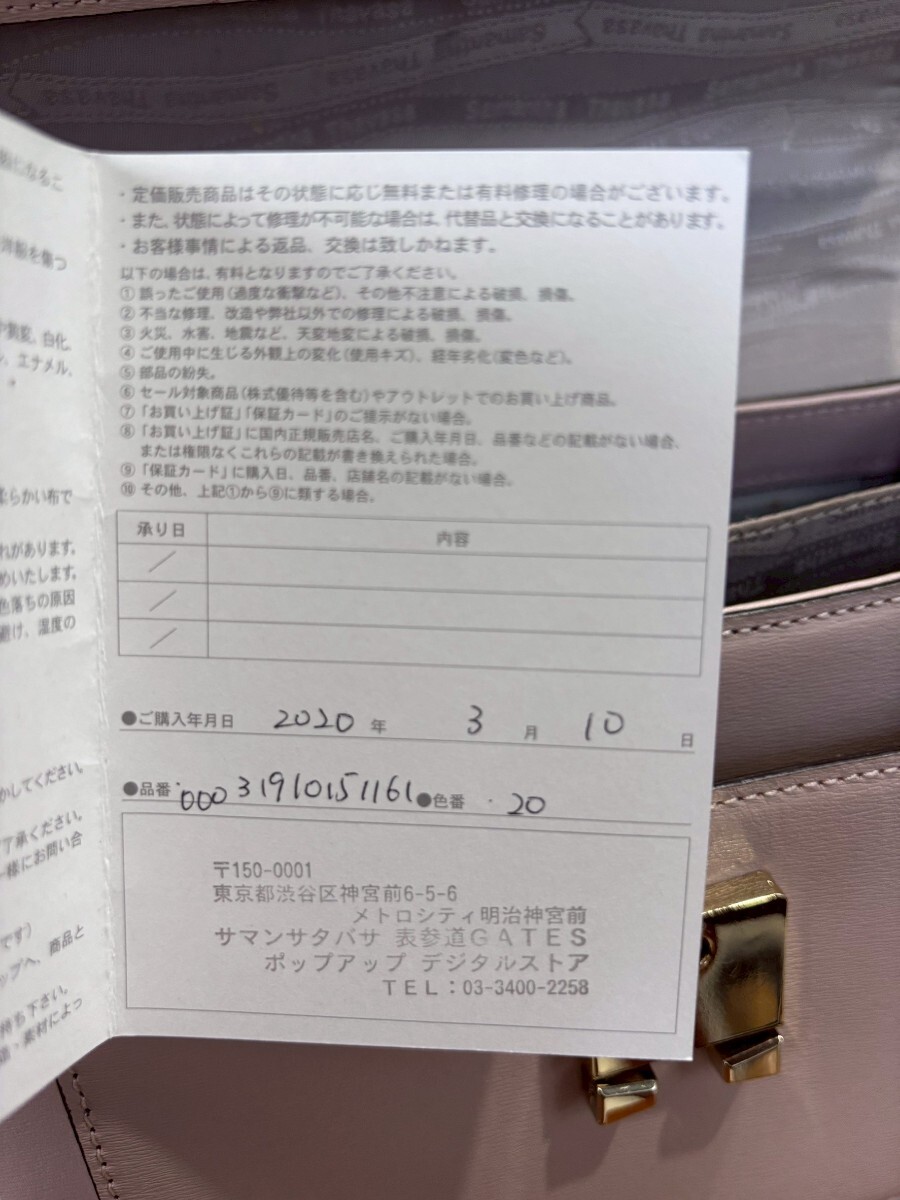 Samantha Thavasa
Samantha
Thavasa
になるこ
・定価販売商品はその状態に応じ無料または有料修理の場合がございます。
・また、状態によって修理が不可能な場合は、代替品と交換になることがあります。
・お客様事情による返品、交換は致しかねます。
以下の場合は、有料となりますのでご了承ください。
①誤ったご使用(過度な衝撃など)、その他不注意による破損、損傷。
②不当な修理、改造や弊社以外での修理による破損、損傷。
③火災、水害、地震など、天変地変による破損、損傷。
④ご使用中に生じる外観上の変化(使用キズ)、経年劣化(変色など)。
⑤部品の紛失。
⑥セール対象商品(株式優待等を含む)やアウトレットでのお買い上げ商品。
⑦「お買い上げ証」「保証カード」のご提示がない場合。
⑧「お買い上げ証」に国内正規販売店名、ご購入年月日、品番などの記載がない場合、
または権限なくこれらの記載が書き換えられた場合。
⑨「保証カード」に購入日、品番、店舗名の記載がない場合。
⑩その他、上記①から⑨に類する場合。
承り日 内容
／
／
／
●ご購入年月日 2020 年 3 月 10 日
●品番・00031910151161 ●色番・20
〒150-0001
東京都渋谷区神宮前6-5-6
メトロシティ明治神宮前
サマンサタバサ 表参道GATES
ポップアップ デジタルストア
TEL:03-3400-2258
洋服を傷つ
や剥変、白化、
エナメル、
柔らかい布で
れがあります。
めいたします。
色落ちの原因
避け、湿度の
かしてください。
了承ください。
様にお問い合
です)
ップへ、商品と
待ち下さい。
・素材によっ